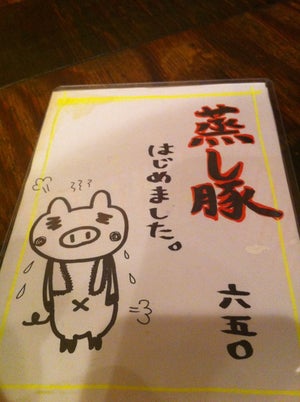 蒸し豚
はじめました。
六五〇